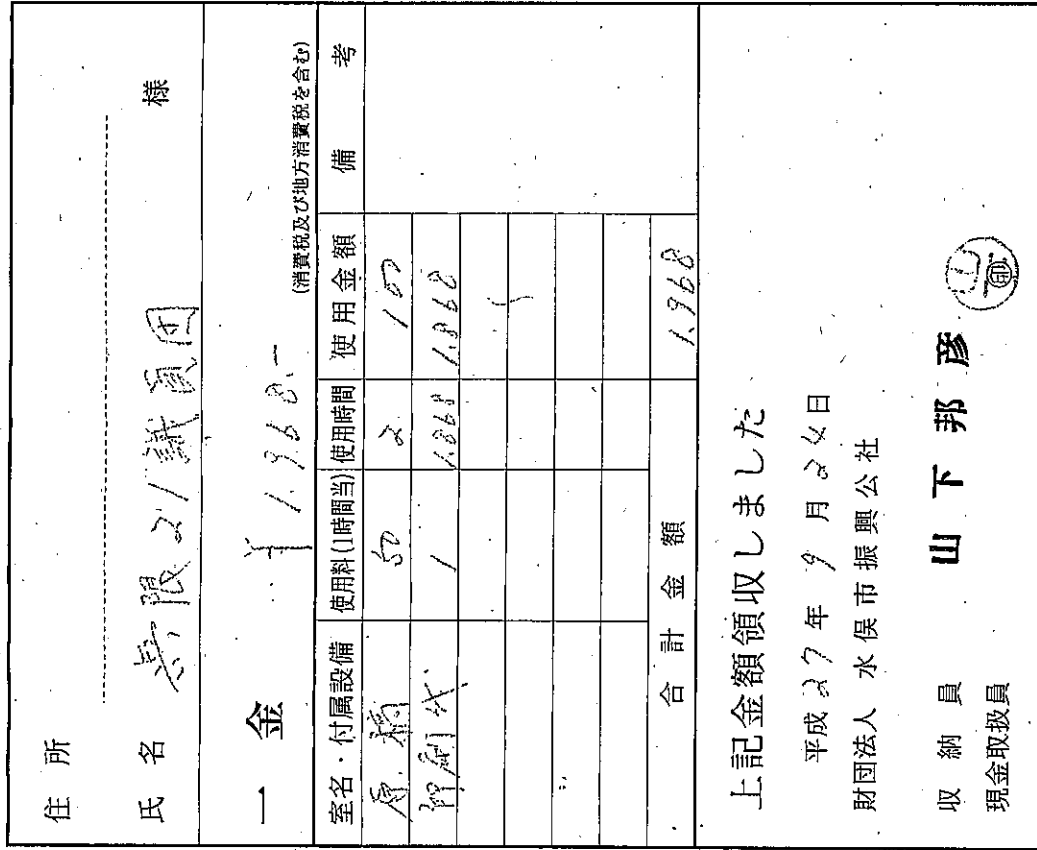 住所
氏名 無限21議員団 様
一金 ¥1,968.-
(消費税及び地方消費税を含む)
室名・付属設備 使用料(1時間当) 使用時間 使用金額 備考
50 2 100
印刷代 1 1,868 1,868
合計金額 1,968
上記金額領収しました
平成27年9月24日
財団法人 水俣市振興公社
収納員
現金取扱員
山下邦彦